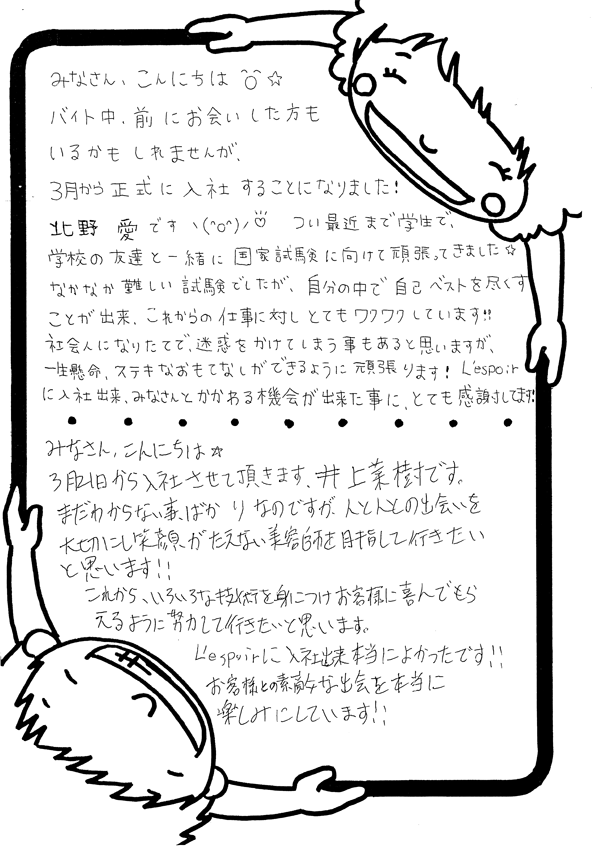 みなさん、こんにちは ^o^ ☆
バイト中、前にお会いした方も
いるかもしれませんが、
3月から正式に入社することになりました!
北野 愛です ヽ(^o^)ノ つい最近まで学生で、
学校の友達と一緒に国家試験に向けて頑張ってきました☆
なかなか難しい試験でしたが、自分の中で自己ベストを尽くす
ことが出来、これからの仕事に対しとてもワクワクしています!!
社会人になりたてで、迷惑をかけてしまう事もあると思いますが、
一生懸命、ステキなおもてなしができるように頑張ります! L'espoir
に入社出来、みなさんとかかわる機会が出来た事に、とても感謝してます!
みなさん、こんにちは☆
3月21日から入社させて頂きます、井上菜樹です。
まだわからない事ばかりなのですが、人と人との出会いを
大切にし笑顔がたえない美容師を目指して行きたい
と思います!!
これから、いろいろな技術を身につけお客様に喜んでもら
えるように努力して行きたいと思います。
L'espoirに入社出来本当によかったです!!
お客様との素敵な出会を本当に
楽しみにしています!!